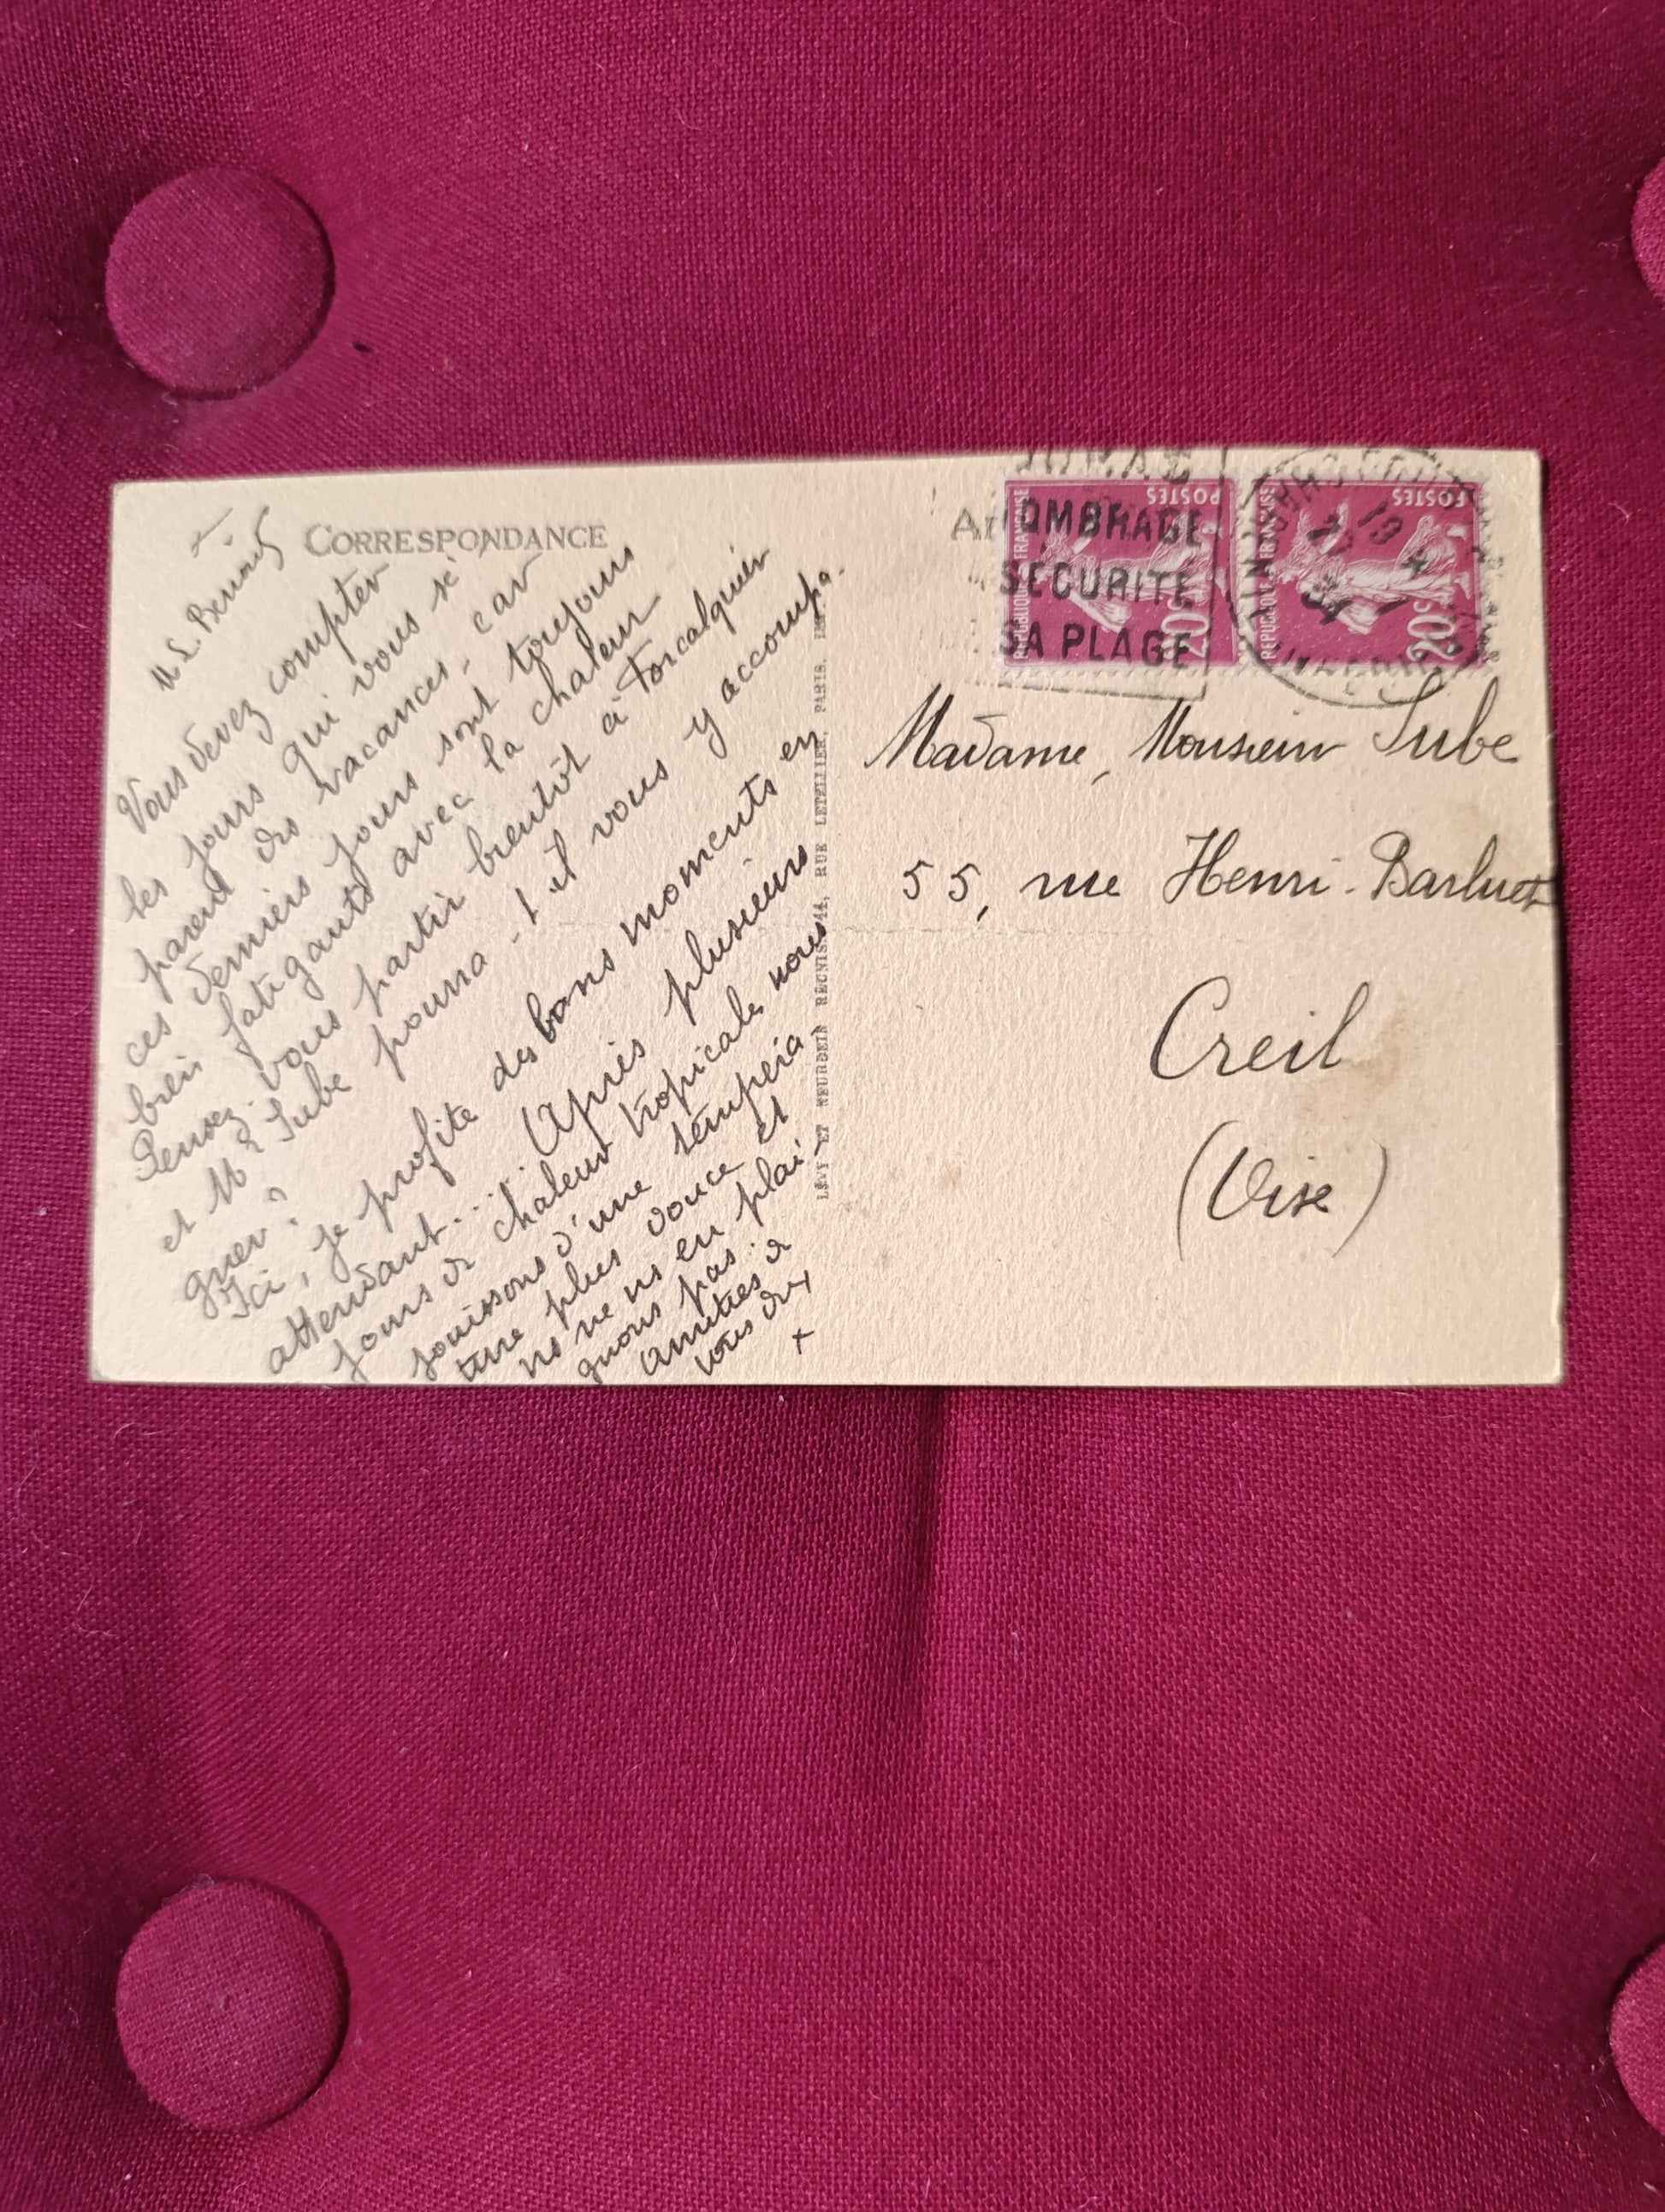 CORRESPONDANCE
Vous devez compter
les jours qui vous sé-
parent des vacances - car
ces derniers jours sont toujours
bien fatigants avec la chaleur
Pensez-vous partir bientôt à Forcalquier
et Mr Sube pourra-t-il vous y accompa-
gner ?
Ici, je profite des bons moments en
attendant... Après plusieurs
jours de chaleur tropicale nous
jouissons d'une tempéra
ture plus douce et
ns ne ns en plai-
gnons pas.
Amitiés à
vous dx
LÉVY ET NEURDEIN RÉUNIS, 44, RUE LETELLIER, PARIS.
OMBRAGE
SÉCURITÉ
SA PLAGE
RÉPUBLIQUE FRANÇAISE
POSTES
20c
RÉPUBLIQUE FRANÇAISE
POSTES
20c
Madame, Monsieur Sube
55, rue Henri-Barbuet
Creil
(Oise)